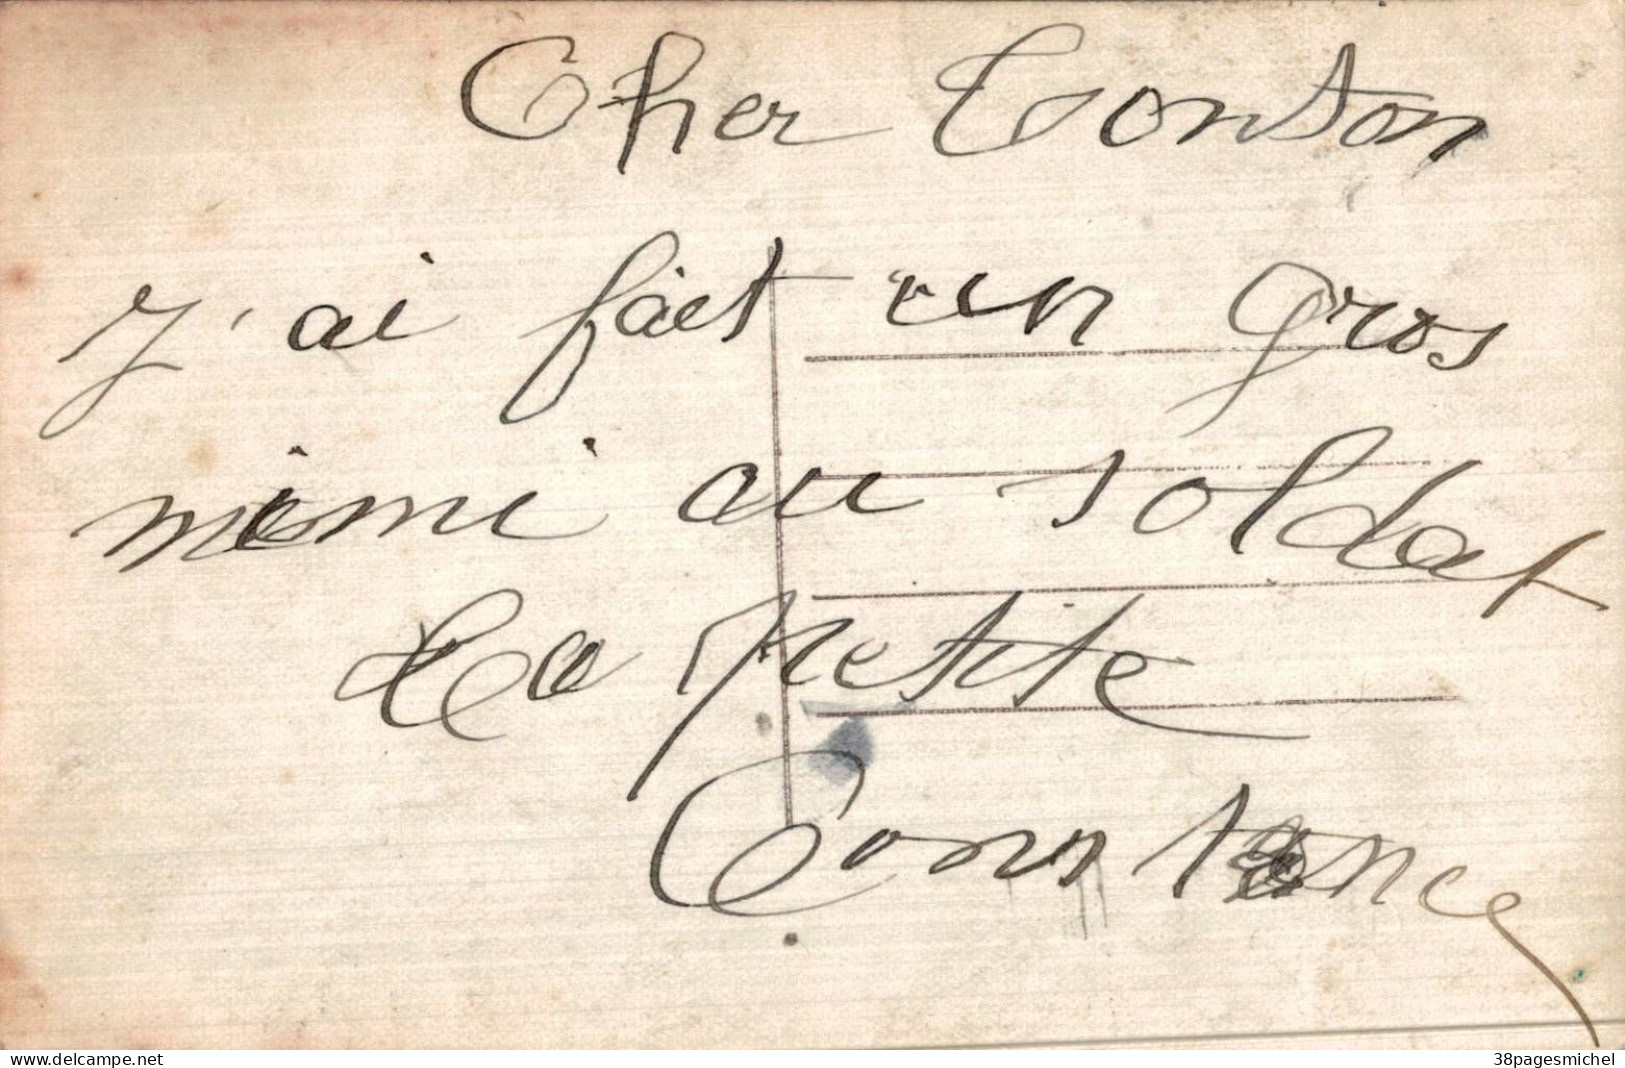 Cher Tonton
J'ai fait un gros
mimi au soldat
La petite
Constance
www.delcampe.net
38pagesmichel